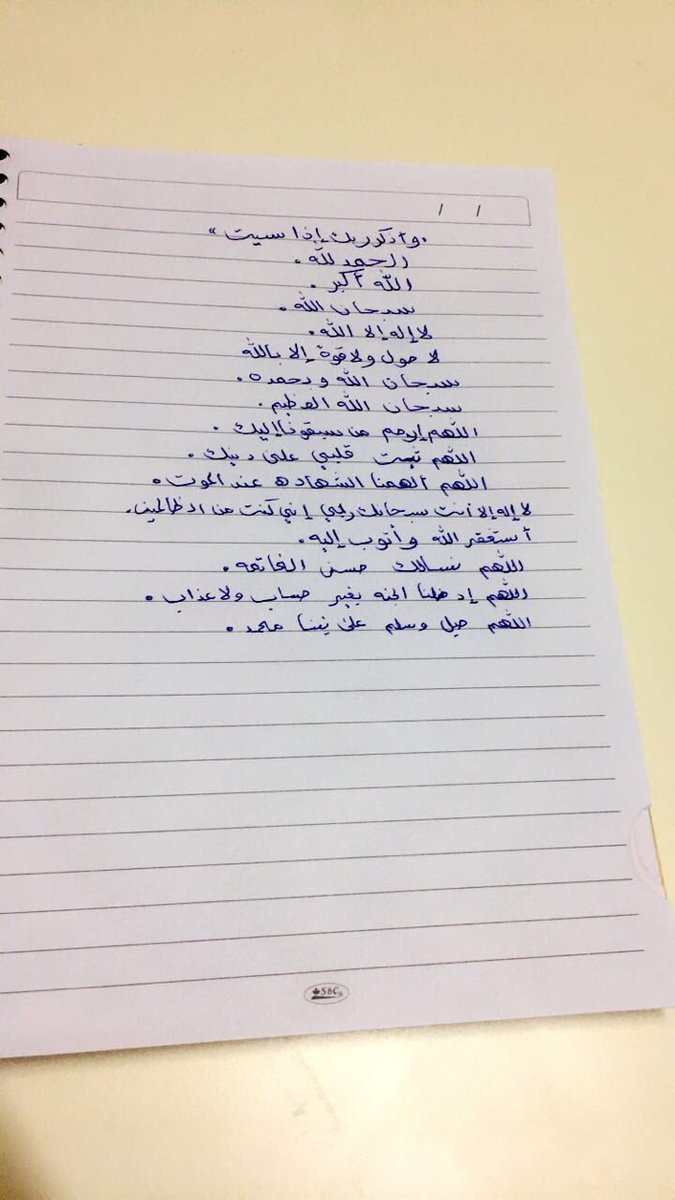 / /
"وأذكر ربك إذا نسيت"
الحمد لله.
الله أكبر.
سبحان الله.
لا إله إلا الله.
لا حول ولا قوة إلا بالله
سبحان الله وبحمده.
سبحان الله العظيم.
اللهم إرحم من سبقونا إليك.
اللهم ثبت قلبي على دينك.
اللهم ألهمنا الشهاده عند الموت.
لا إله إلا أنت سبحانك ربي إني كنت من الظالمين.
أستغفر الله وأتوب إليه.
اللهم نسالك حسن الخاتمه.
اللهم إدخلنا الجنه بغير حساب ولا عذاب.
اللهم صل وسلم على نبينا محمد.
SbC